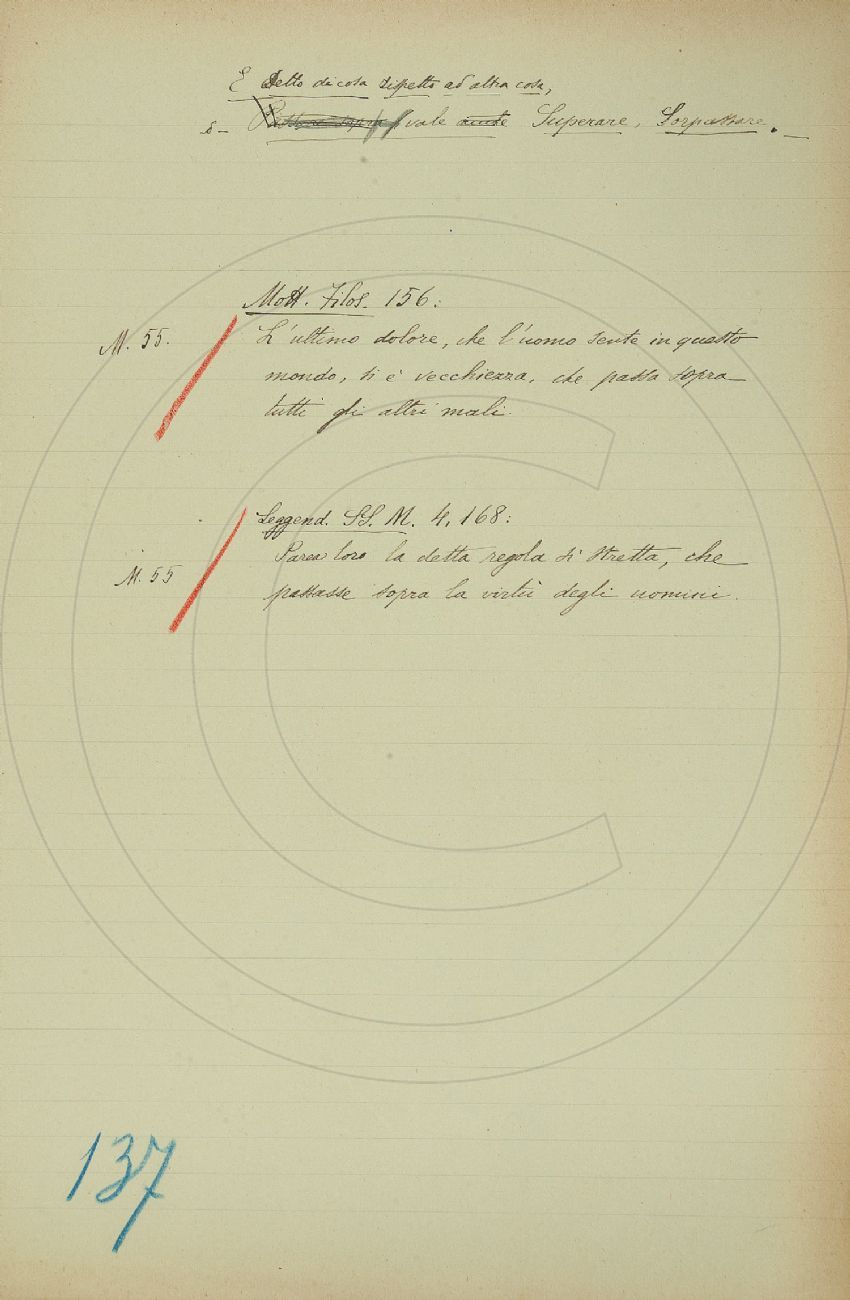 E Detto di cosa rispetto ad altra cosa,
§ – Passare sopra vale anche Superare, Sorpassare. –
Mott. Filos. 156:
M. 55.
L'ultimo dolore, che l'uomo sente in questo
mondo, si è vecchiezza, che passa sopra
tutti gli altri mali.
Leggend. SS. M. 4, 168:
M. 55
Parea loro la detta regola sì stretta, che
passasse sopra la virtù degli uomini.
137